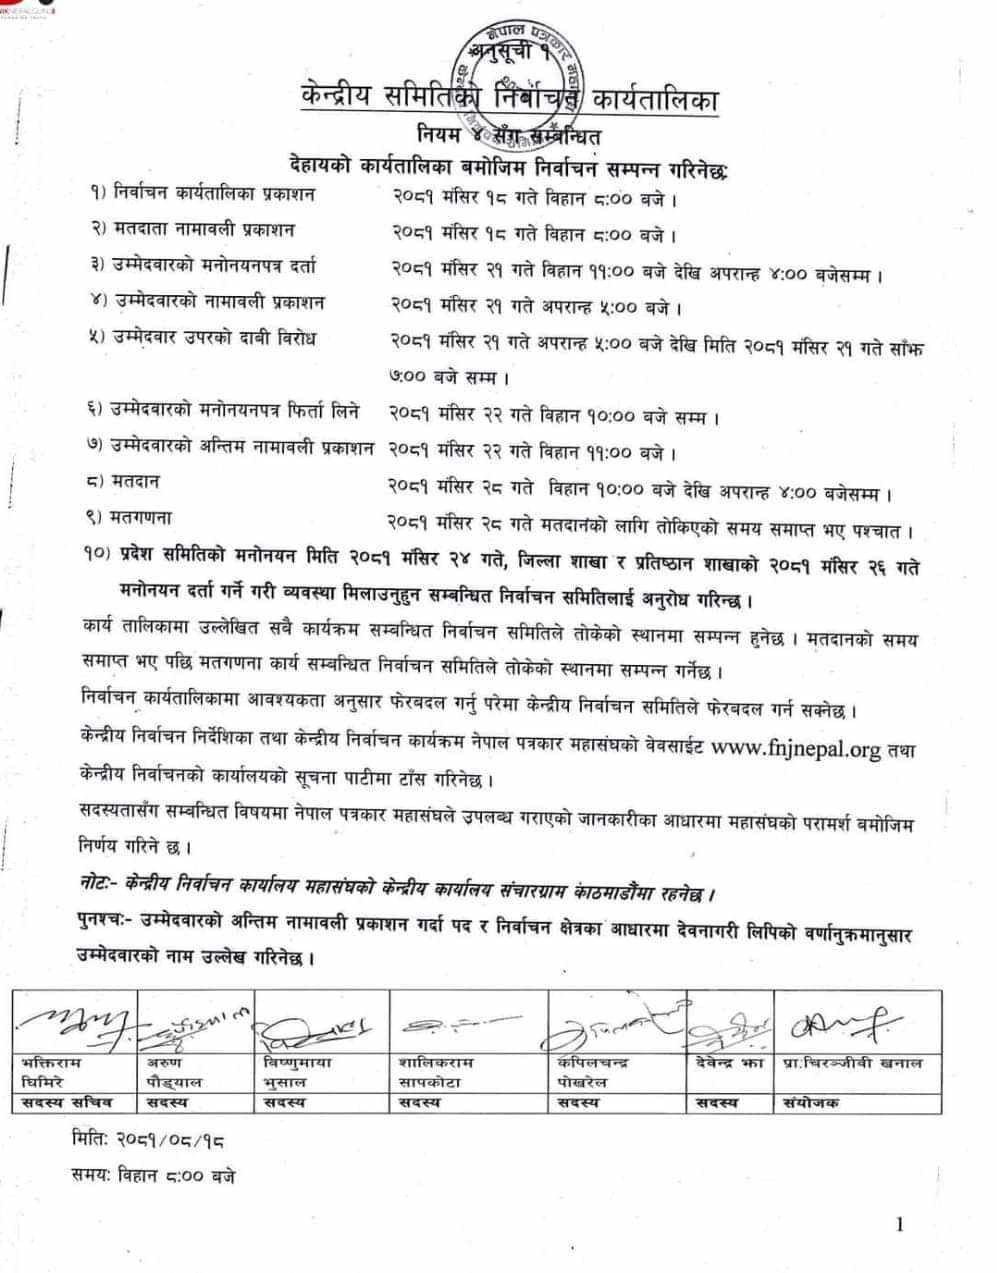 अनुसूची १
केन्द्रीय समितिको निर्वाचन कार्यतालिका
नियम ४ सँग सम्बन्धित
देहायको कार्यतालिका बमोजिम निर्वाचन सम्पन्न गरिनेछः
१) निर्वाचन कार्यतालिका प्रकाशन २०८१ मंसिर १८ गते विहान ८:०० बजे ।
२) मतदाता नामावली प्रकाशन २०८१ मंसिर १८ गते विहान ८:०० बजे ।
३) उम्मेदवारको मनोनयनपत्र दर्ता २०८१ मंसिर २१ गते विहान ११:०० बजे देखि अपरान्ह ४:०० बजेसम्म ।
४) उम्मेदवारको नामावली प्रकाशन २०८१ मंसिर २१ गते अपरान्ह ५:०० बजे ।
५) उम्मेदवार उपरको दाबी विरोध २०८१ मंसिर २१ गते अपरान्ह ५:०० बजे देखि मिति २०८१ मंसिर २१ गते साँझ
७:०० बजे सम्म ।
६) उम्मेदवारको मनोनयनपत्र फिर्ता लिने २०८१ मंसिर २२ गते विहान १०:०० बजे सम्म ।
७) उम्मेदवारको अन्तिम नामावली प्रकाशन २०८१ मंसिर २२ गते विहान ११:०० बजे ।
८) मतदान २०८१ मंसिर २८ गते विहान १०:०० बजे देखि अपरान्ह ४:०० बजेसम्म ।
९) मतगणना २०८१ मंसिर २८ गते मतदानको लागि तोकिएको समय समाप्त भए पश्चात ।
१०) प्रदेश समितिको मनोनयन मिति २०८१ मंसिर २४ गते, जिल्ला शाखा र प्रतिष्ठान शाखाको २०८१ मंसिर २६ गते
मनोनयन दर्ता गर्ने गरी व्यवस्था मिलाउनुहुन सम्बन्धित निर्वाचन समितिलाई अनुरोध गरिन्छ ।
कार्य तालिकामा उल्लेखित सवै कार्यक्रम सम्बन्धित निर्वाचन समितिले तोकेको स्थानमा सम्पन्न हुनेछ । मतदानको समय
समाप्त भए पछि मतगणना कार्य सम्बन्धित निर्वाचन समितिले तोकेको स्थानमा सम्पन्न गर्नेछ ।
निर्वाचन कार्यतालिकामा आवश्यकता अनुसार फेरबदल गर्नु परेमा केन्द्रीय निर्वाचन समितिले फेरबदल गर्न सक्नेछ ।
केन्द्रीय निर्वाचन निर्देशिका तथा केन्द्रीय निर्वाचन कार्यक्रम नेपाल पत्रकार महासंघको वेवसाईट www.fnjnepal.org तथा
केन्द्रीय निर्वाचनको कार्यालयको सूचना पाटीमा टाँस गरिनेछ ।
सदस्यतासँग सम्बन्धित विषयमा नेपाल पत्रकार महासंघले उपलब्ध गराएको जानकारीका आधारमा महासंघको परामर्श बमोजिम
निर्णय गरिने छ ।
नोटः- केन्द्रीय निर्वाचन कार्यालय महासंघको केन्द्रीय कार्यालय संचारग्राम काठमाडौंमा रहनेछ ।
पुनश्चः- उम्मेदवारको अन्तिम नामावली प्रकाशन गर्दा पद र निर्वाचन क्षेत्रका आधारमा देवनागरी लिपिको वर्णानुक्रमानुसार
उम्मेदवारको नाम उल्लेख गरिनेछ ।
भक्तिराम अरुण विष्णुमाया शालिकराम कपिलचन्द्र देवेन्द्र झा प्रा.चिरञ्जीवी खनाल
घिमिरे पौड्याल भुसाल सापकोटा पोखरेल
सदस्य सचिव सदस्य सदस्य सदस्य सदस्य सदस्य संयोजक
मितिः २०८१/०८/१८
समयः विहान ८:०० बजे
1